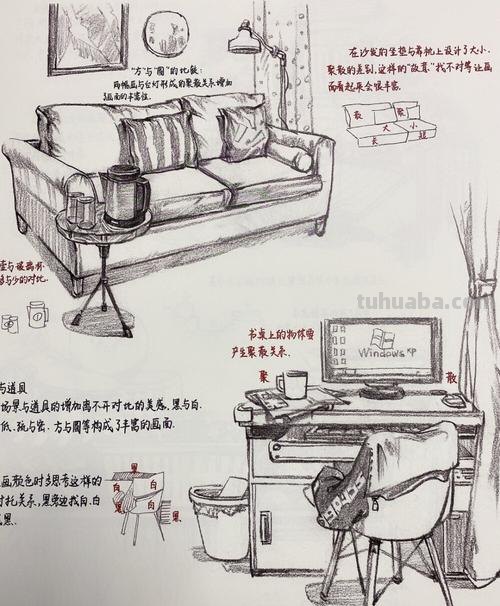 “方”与“圆”的比较:
两幅画与台灯形成的聚散关系增加
画面的丰富性.
在沙发的坐垫与靠枕上设计了大小、
聚散的差别,这样的“故意”找不对等让画
面看起来会很丰富.
散 聚
大 小
长 短
壶与玻璃杯
多与少的对比.
tuhuaba.com
书桌上的物体要
产生聚散关系.
聚 散
Windows XP
与道具
场景与道具的增加离不开对比的美感,黑与白.
低、疏与密、方与圆等构成了丰富的画面.
画颜色时多思考这样的
衬托关系,黑旁边找白.白
黑.
黑
白 白
黑 白
黑